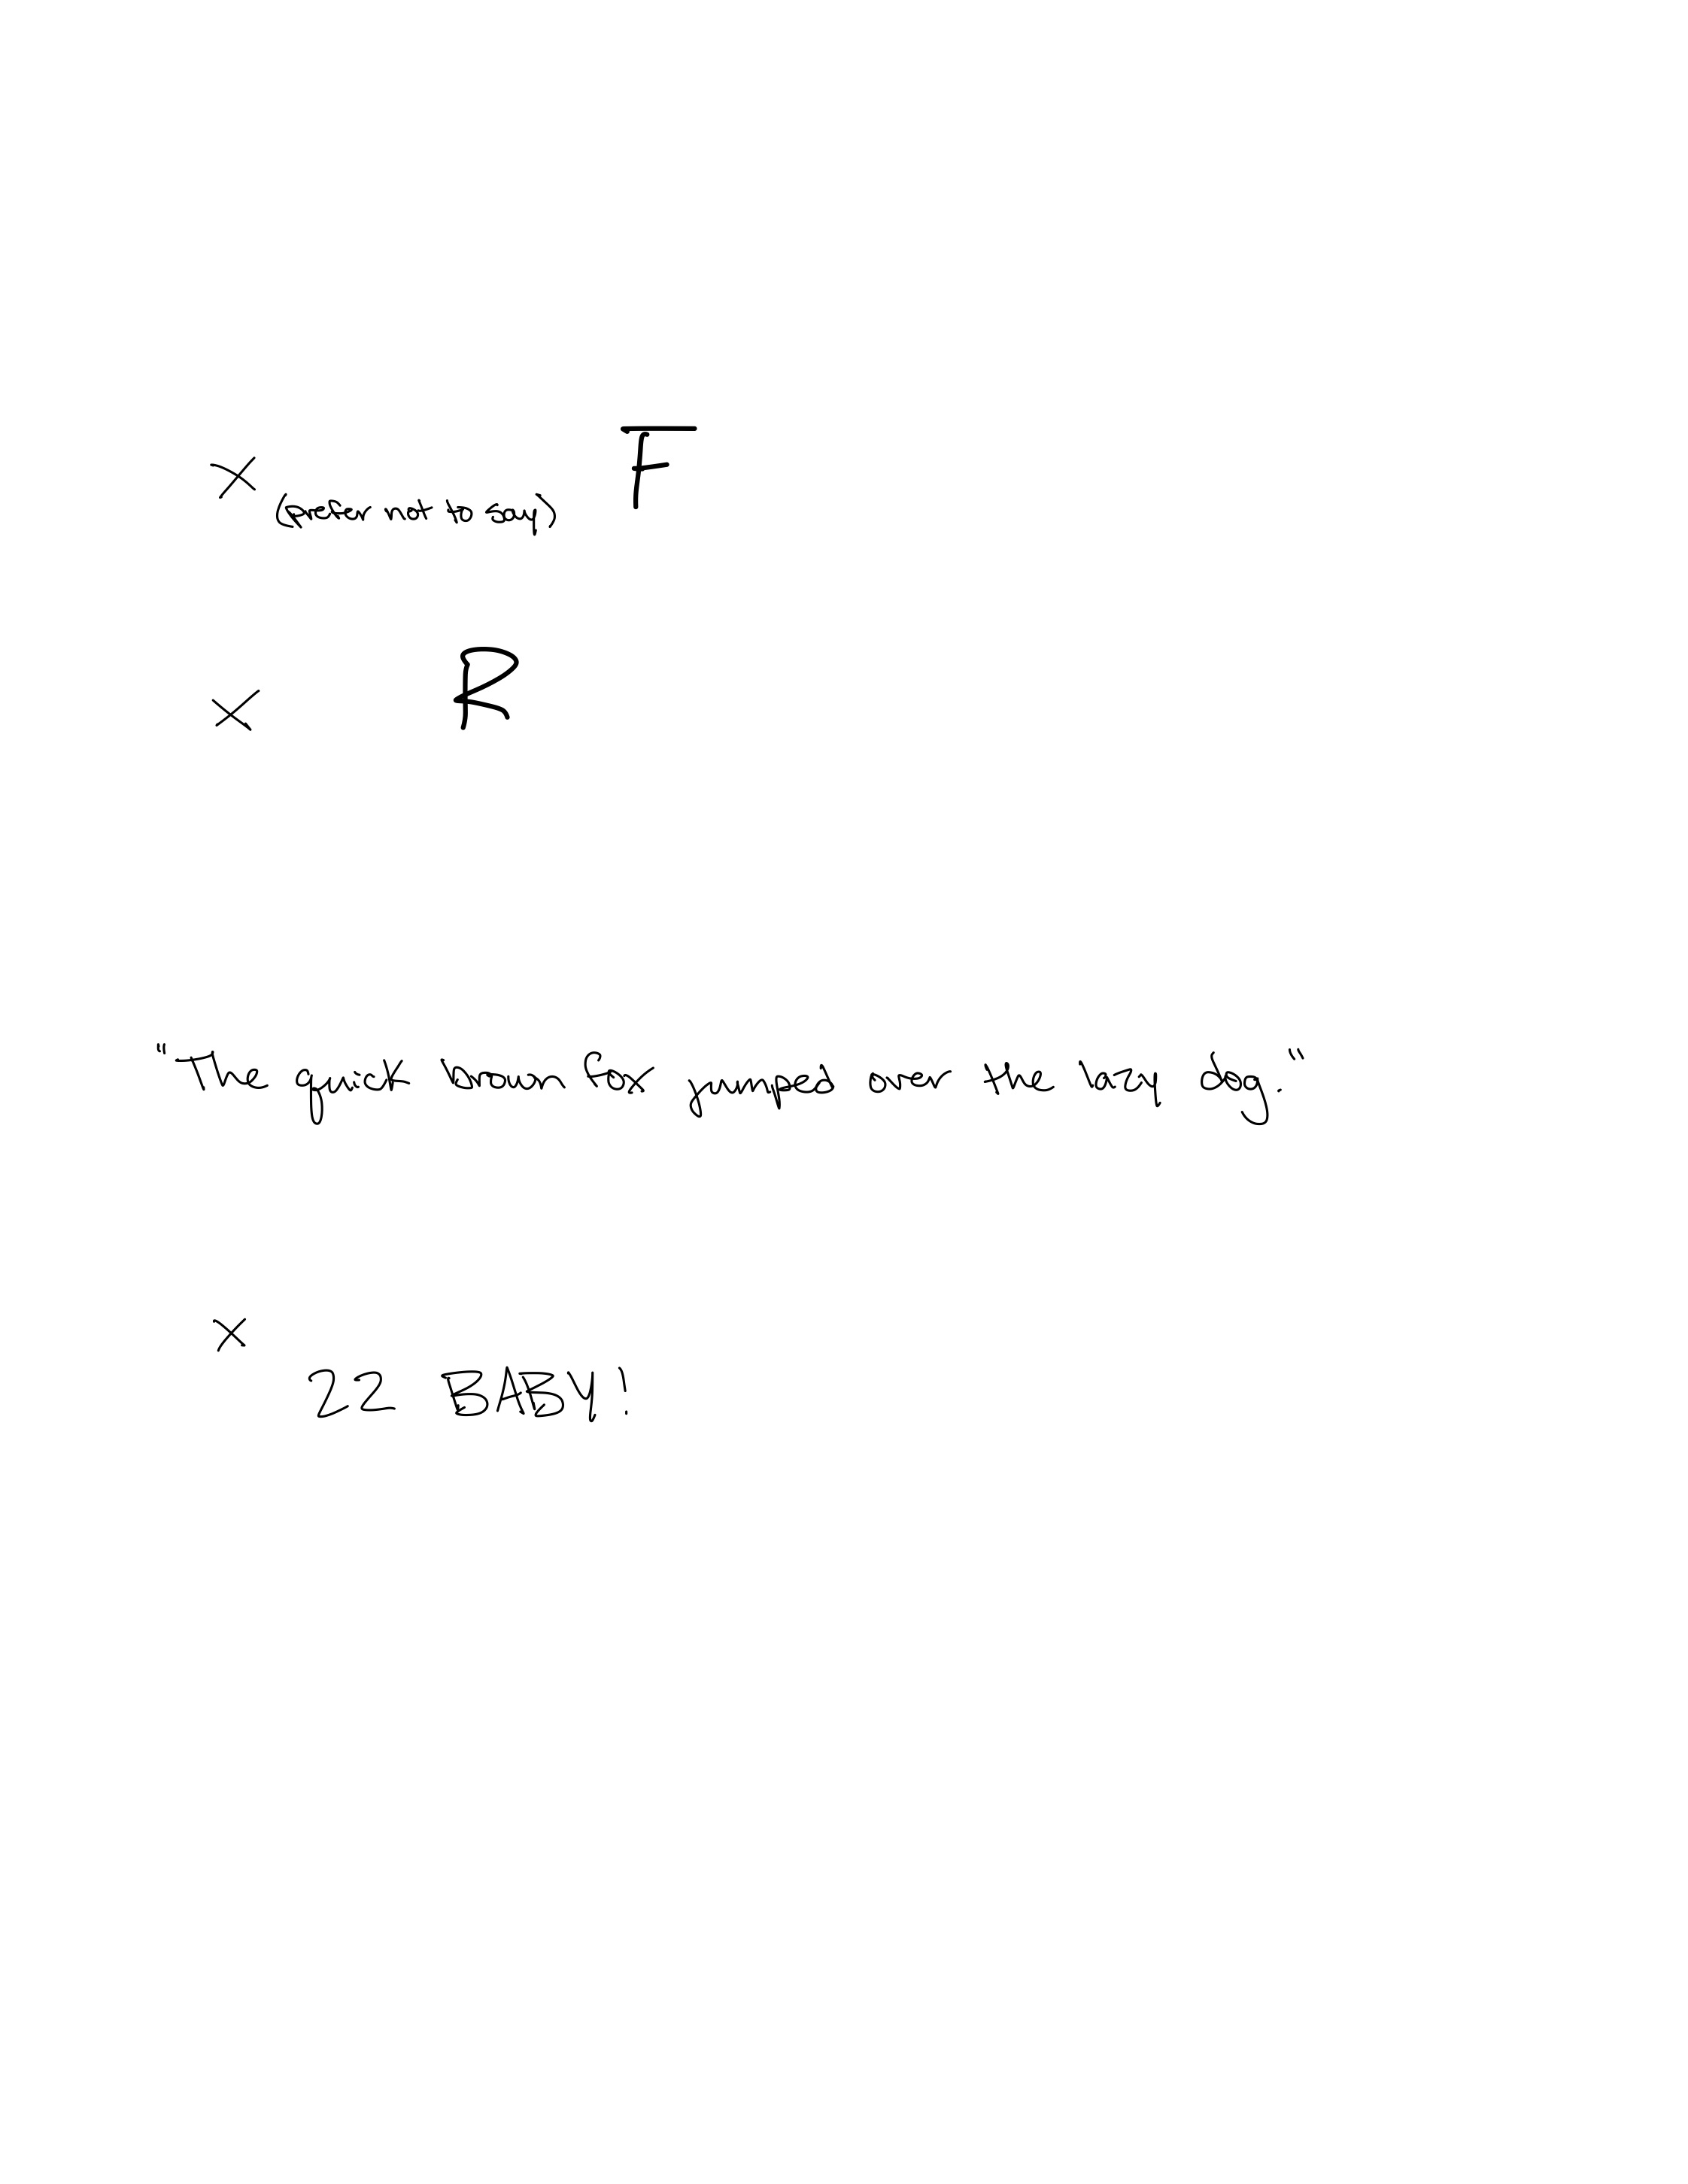 X (prefer not to say) F
X R
"The quick brown fox jumped over the lazy dog."
X
22 BABY!